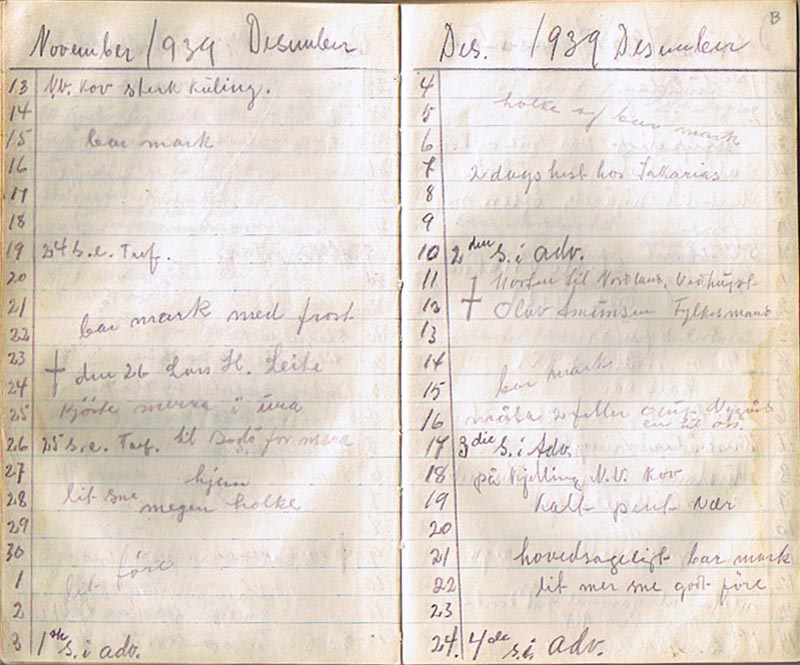 November 1939 Desember
13 N.V. Kov sterk kuling.
14
15 bar mark
16
17
18
19 24 S.e. Tref.
20
21 bar mark med frost
22
23 † den 26 Lars H. Leite
24
25 Kjörte merra i ura
26 25 S.e. Tref. til Bodö for mera
27 hjem
28 lit sne megen holke
29
30 före
1
2
3 1ste S. i adv.
Des. 1939 Desember
B
4
5 holke og bar mark
6
7 2 dags hest hos Sakarias
8
9
10 2den S. i adv.
11 til Nordland,
12 † Olav Amunsen Fylkesmand
13
14
15 bar mark
16 2 feller
en til oss.
17 3die S. i Adv.
18 på Kjelling N.V. Kov
19 kalt pent vær
20
21 hovedsageligt bar mark
22 lit mer sne godt före
23
24. 4de S. i adv.